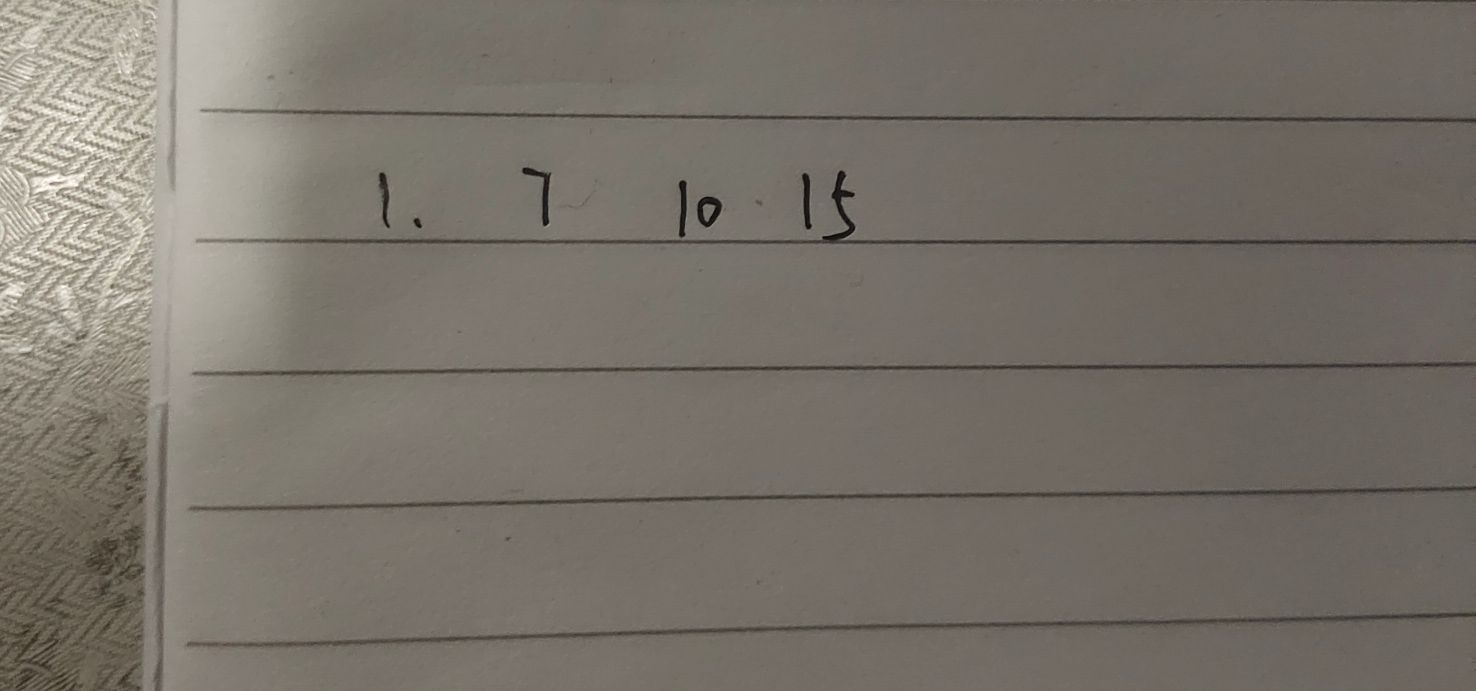 1. 7 10 15